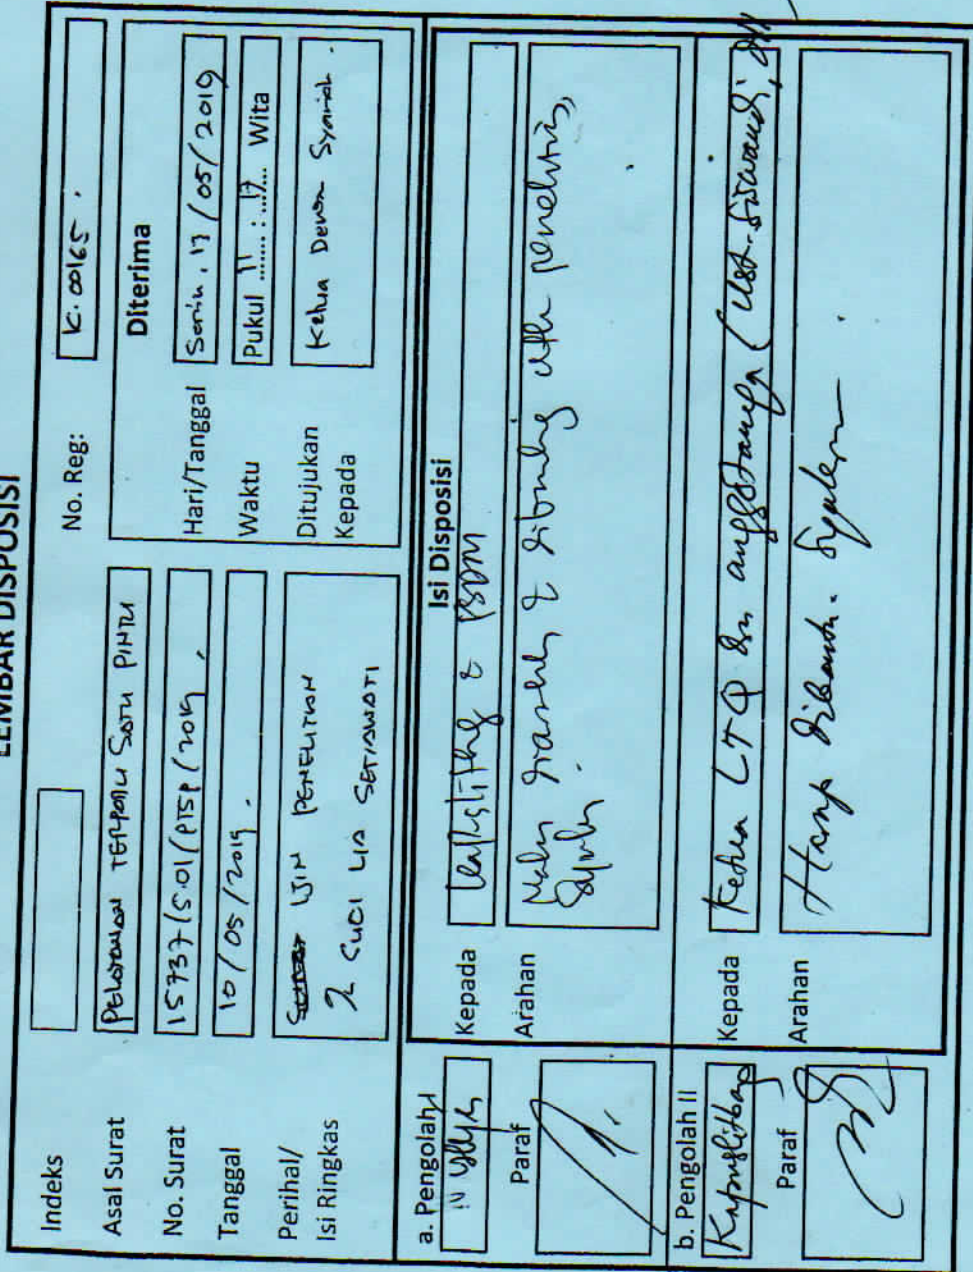 LEMBAR DISPOSISI
Indeks
No. Reg: K.00165.
Asal Surat PELAYANAN TERPADU SATU PINTU
No. Surat 15737/5.01/PTSP/2019
Tanggal 10/05/2019.
Perihal/
Isi Ringkas
IJIN PENELITIAN
SUCI LIA SETIAWATI
Diterima
Hari/Tanggal Senin, 13/05/2019
Waktu Pukul 11 : 17 Wita
Ditujukan
Kepada
Ketua Dewan Syariah.
Isi Disposisi
a. Pengolah I
Paraf
Kepada Kapuslitbang & PSDM
Arahan
& dibimbing utk penelitian,
b. Pengolah II
Kapuslitbang
Paraf
Kepada Ketua LTQ dan anggotanya (Ust.
Arahan Harap dibantu.